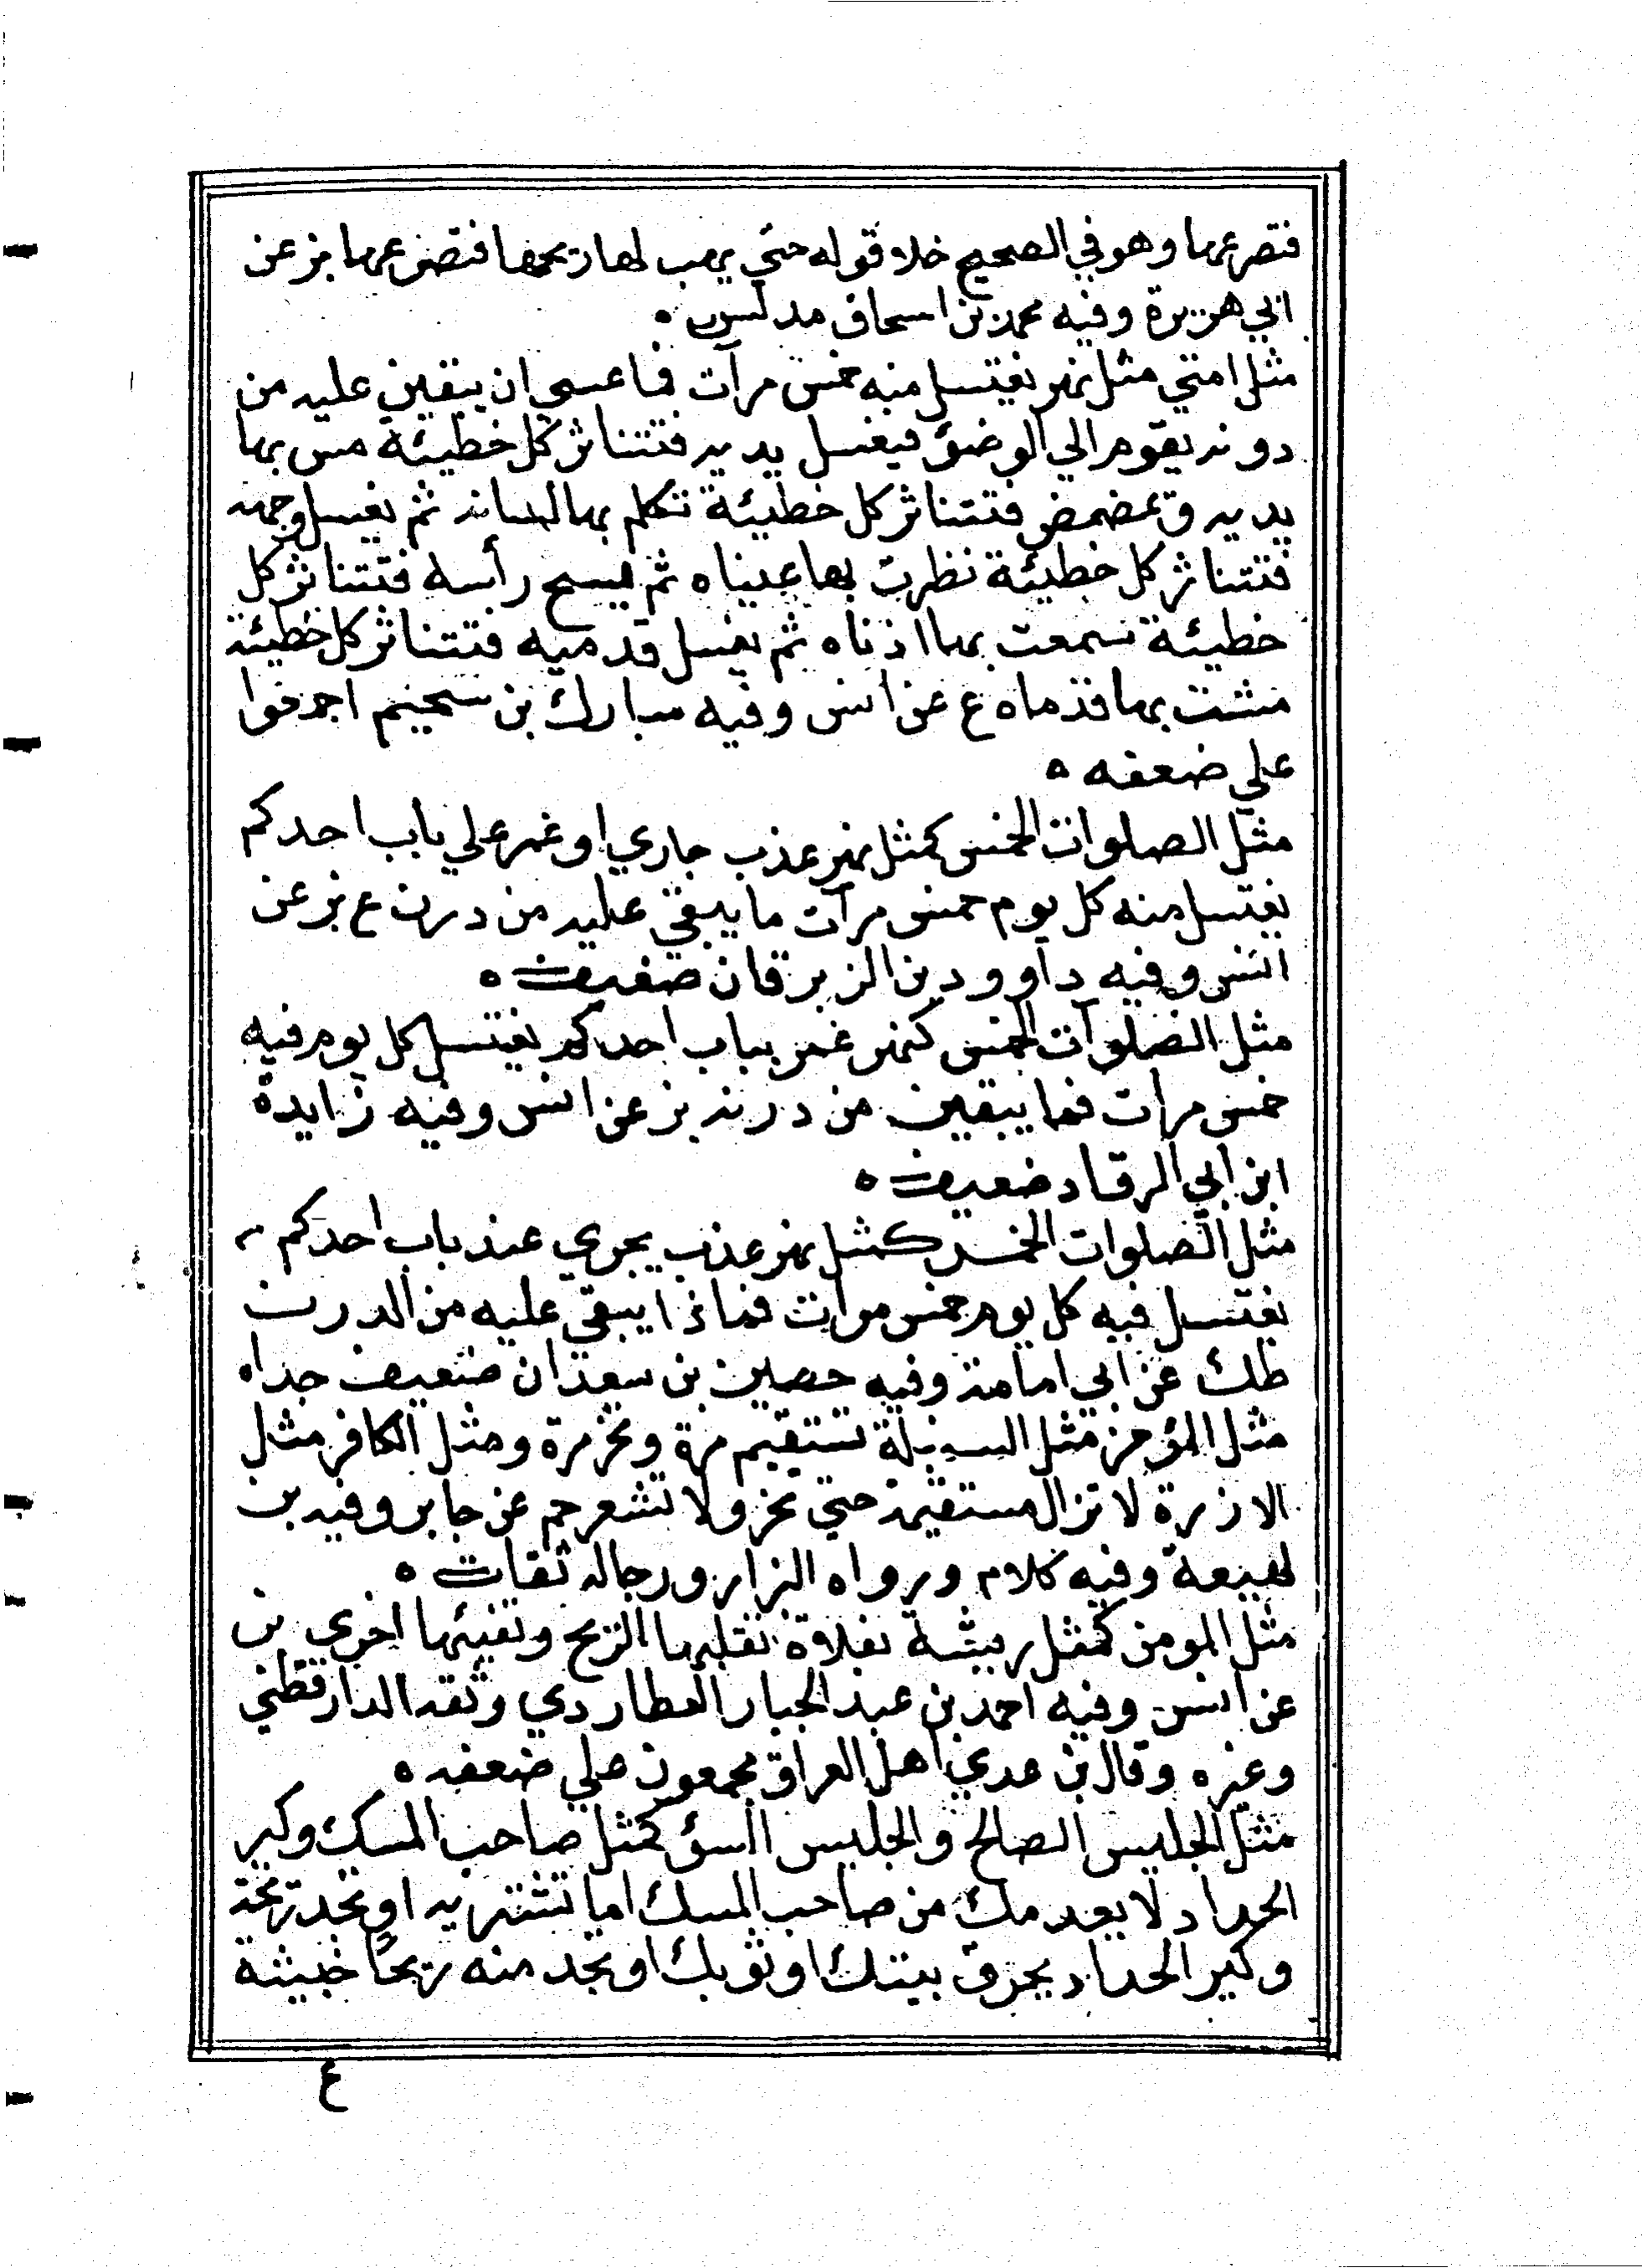 فتصرعها وهو في الصحيح خلا قوله حتي يهب لها ريحها فتصرعها بز عن
ابي هريرة وفيه محمد بن اسحاق مدلس ه
مثل امتي مثل نهر يغتسل منه خمس مرآت فما عسي ان يبقين عليه من
دونه يقوم الي الوضؤ فيغسل يديه فتتناثر كل خطيئة مس بها
يديه وتمضمض فتتناثر كل خطيئة تكلم بها لسانه ثم يغسل وجهه
فتتناثر كل خطيئة نظرت بها عيناه ثم يمسح رأسه فتتناثر كل
خطيئة سمعت بها اذناه ثم يغسل قدميه فتتناثر كل خطيئة
مشت بها قدماه ع عن انس وفيه مبارك بن سحيم اجمعوا
علي ضعفه ه
مثل الصلوات الخمس كمثل نهر عذب جاري او غمر علي باب احدكم
يغتسل منه كل يوم خمس مرآت ما يبقي عليه من درن ع بز عن
انس وفيه داوود بن الزبرقان ضعيف ه
مثل الصلوآت الخمس كنهر غمر بباب احدكم يغتسل كل يوم فيه
خمس مرات فما يبقين من درنه بز عن انس وفيه زايدة
ابن ابي الرقاد ضعيف ه
مثل الصلوات الخمس كمثل نهر عذب يجري عند باب احدكم
يغتسل فيه كل يوم خمس مرات فماذا يبقي عليه من الدرن
طك عن ابي امامة وفيه حصين بن سعدان ضعيف جدا ه
مثل المؤمن مثل السنبلة تستقيم مرة وتخر مرة ومثل الكافر مثل
الارزة لا تزال مستقيمة حتي تخر ولا تشعر حم عن جابر وفيه بن
لهيعة وفيه كلام ورواه البزار ورجاله ثقات ه
مثل المومن كمثل ريشة بفلاة تقلبها الريح وتفيئها اخري بن
عن انس وفيه احمد بن عبد الجبار العطاردي وثقه الدارقطني
وغيره وقال بن عدي اهل العراق مجمعون علي ضعفه ه
مثل الجليس الصالح والجليس السؤ كمثل صاحب المسك وكير
الحداد لا يعدمك من صاحب المسك اما تشتريه او تجد ريحه
وكير الحداد يحرق بيتك او ثوبك او تجد منه ريحًا خبيثة
ع